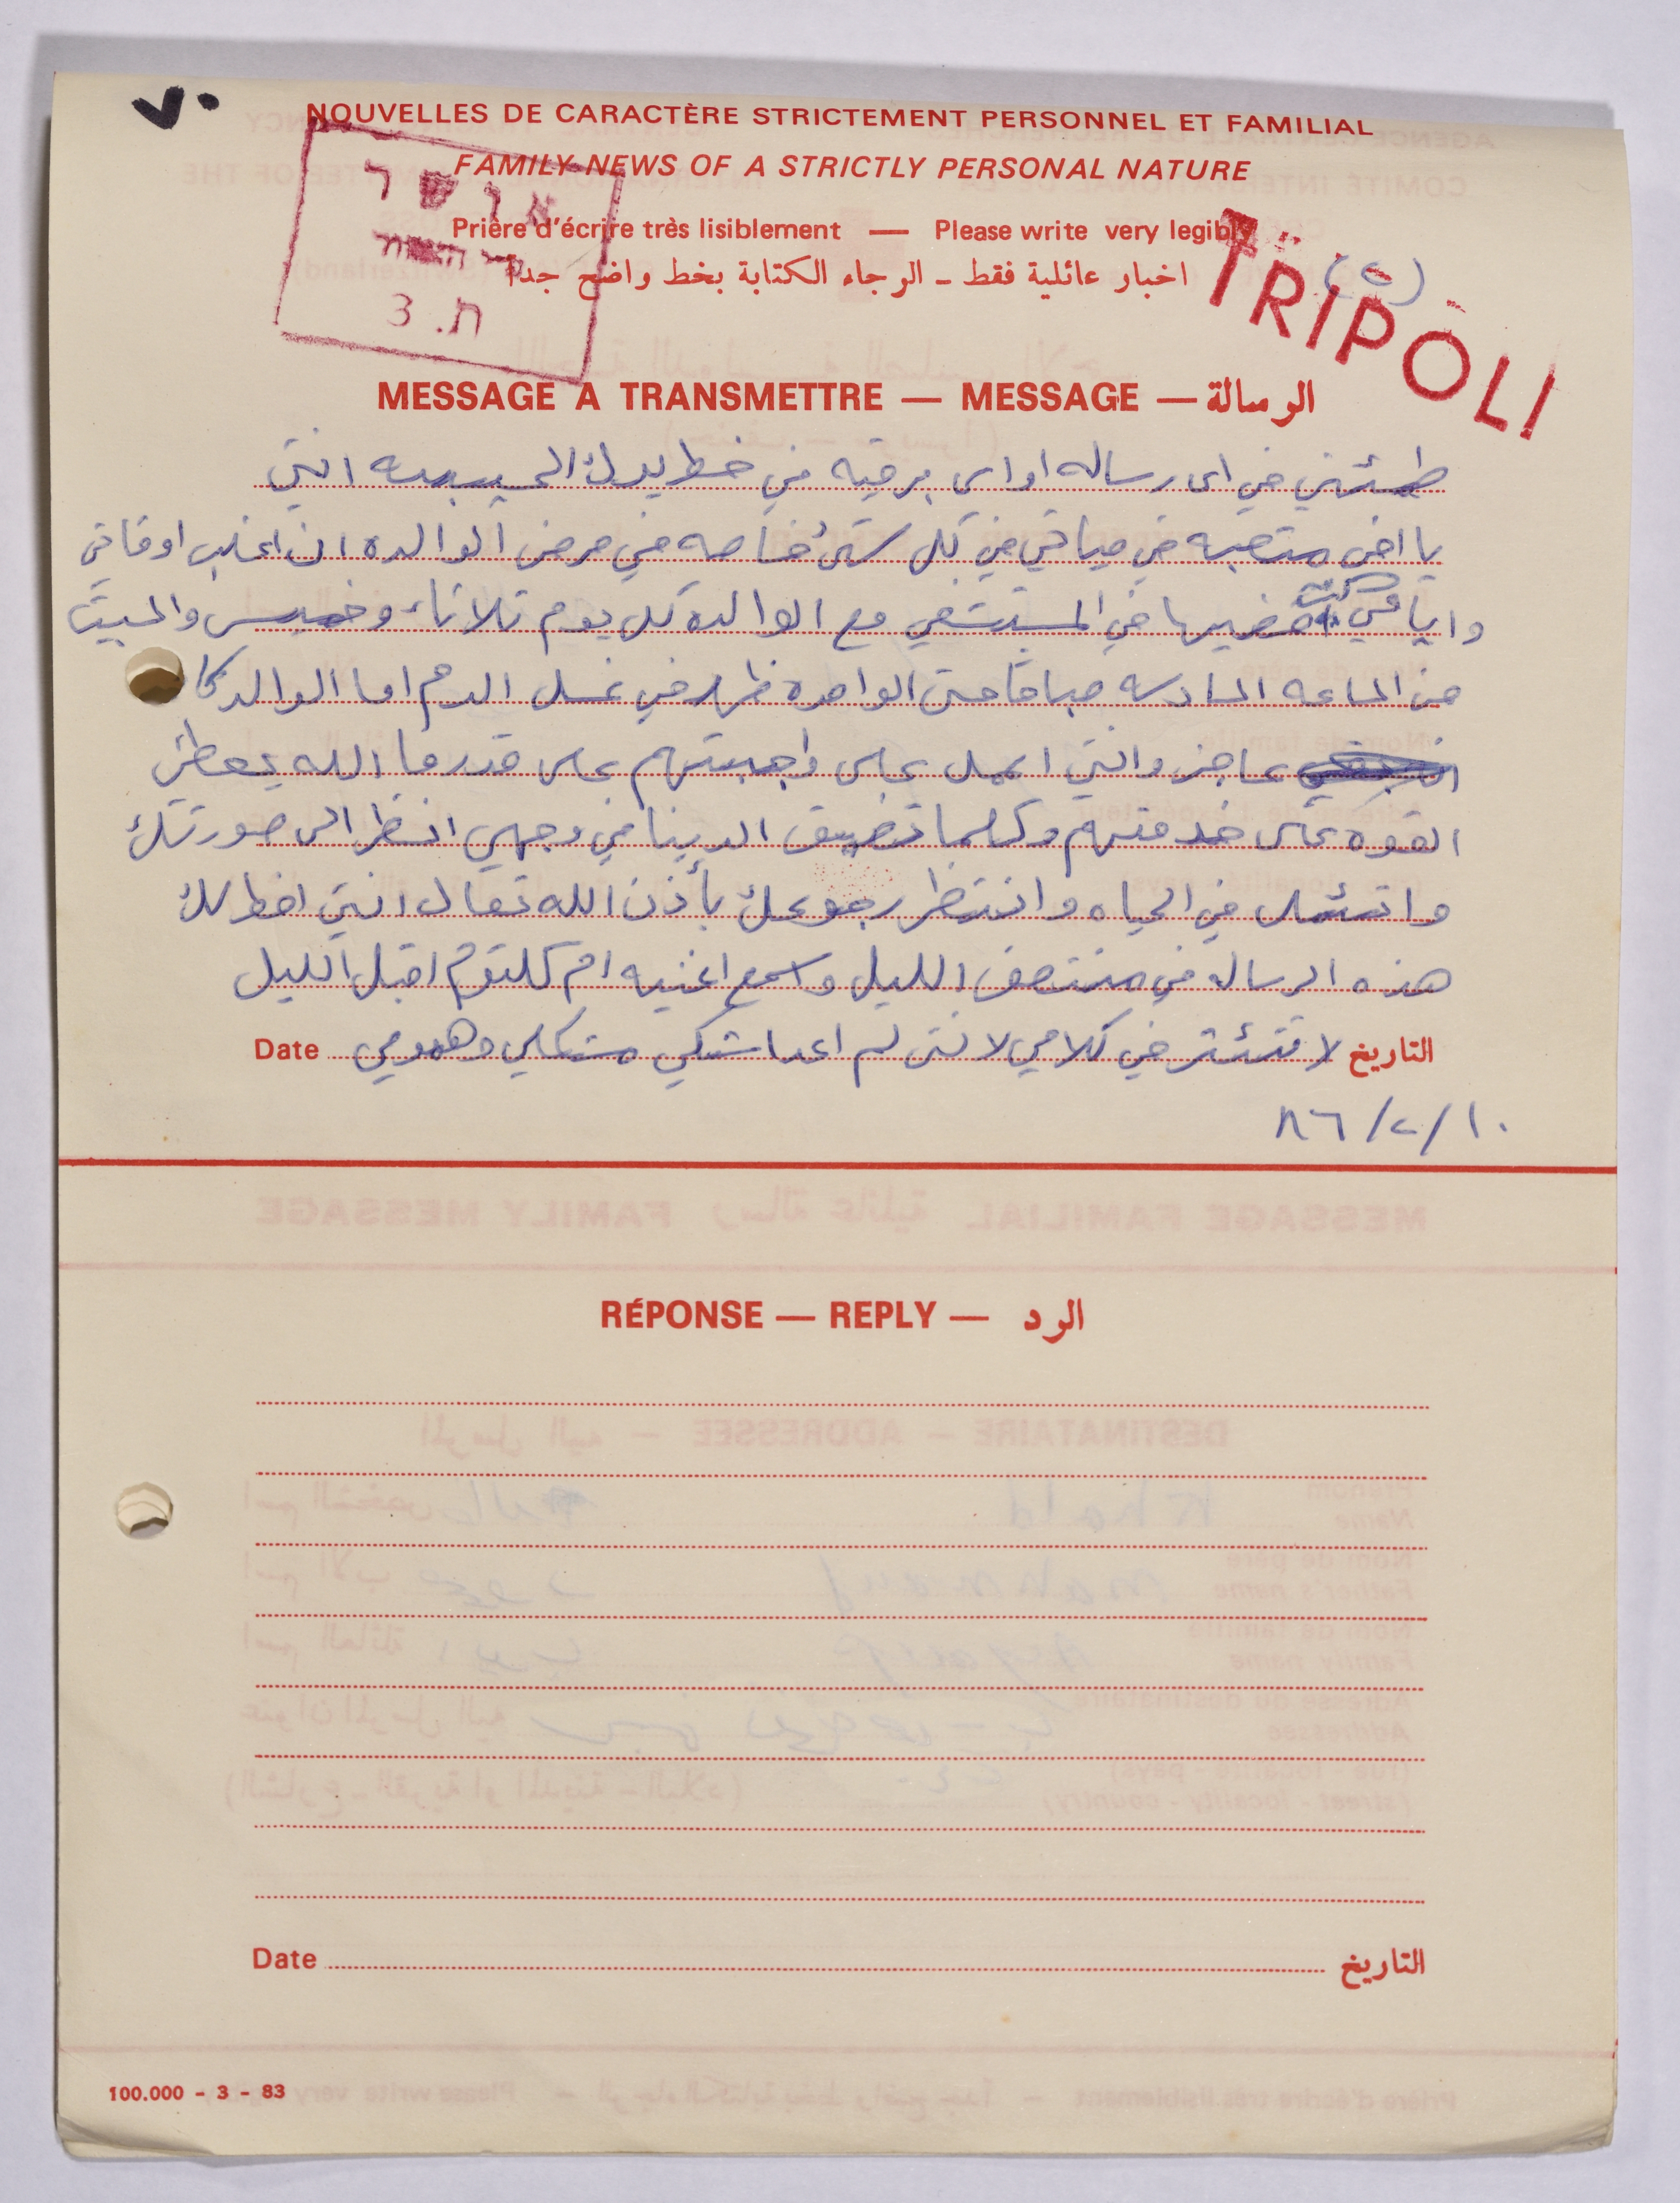 ٧٠
NOUVELLES DE CARACTÈRE STRICTEMENT PERSONNEL ET FAMILIAL
FAMILY NEWS OF A STRICTLY PERSONAL NATURE
אושר
Prière d'écrire très lisiblement — Please write very legibly
اخبار عائلية فقط - الرجاء الكتابة بخط واضح جدا
(٢)
TRIPOLI
ת. 3
MESSAGE A TRANSMETTRE — MESSAGE — الرسالة
طمئنني في اى رساله او اى برقيه في خط يدك الحبيبه انني
يا اخي متعبه في حياتي في كل شئ خاصه في مرض الوالده ان اغلب اوقاتي
وايامي نمضيها في المستشفي مع الوالده كل يوم ثلاثاء وخميس والسبت
من الساعه السادسه صباحا حتى الواحده ظهر في غسل الدم اما الوالد كا
عاجز وانني اعمل على واجبتهم على قدر ما الله يعطني
القوه على خدمتهم وكلما تضيق الدينا في وجهي انظر الى صورتك
واتئمل في الحياه وانتظر رجوعك بأذن الله تعالى انني اخط لك
هذه الرساله في منتصف الليل واسمع اغنيه ام كلثوم اقبل الليل
Date لا تتئثر في كلامي لانني لم اعد اشتكي مشكلي وهمومي التاريخ
١٠/٢/٨٦
RÉPONSE — REPLY — الرد
Date التاريخ
100.000 - 3 - 83